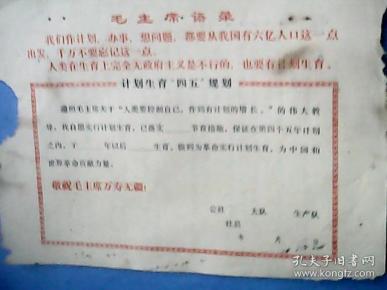 毛主席语录
我们作计划、办事、想问题，都要从我国有六亿人口这一点
出发，千万不要忘记这一点。
人类在生育上完全无政府主义是不行的，也要有计划生育。
计划生育“四五”规划
遵照毛主席关于“人类要控制自己，作到有计划的增长。”的伟大教
导，我自愿实行计划生育，已落实 节育措施，保证在第四个五年计划
之内，于 年以后 生育，做到为革命实行计划生育，为中国和
世界革命贡献力量。
敬祝毛主席万寿无疆！
公社 大队 生产队
社员
年 月
孔夫子旧书网